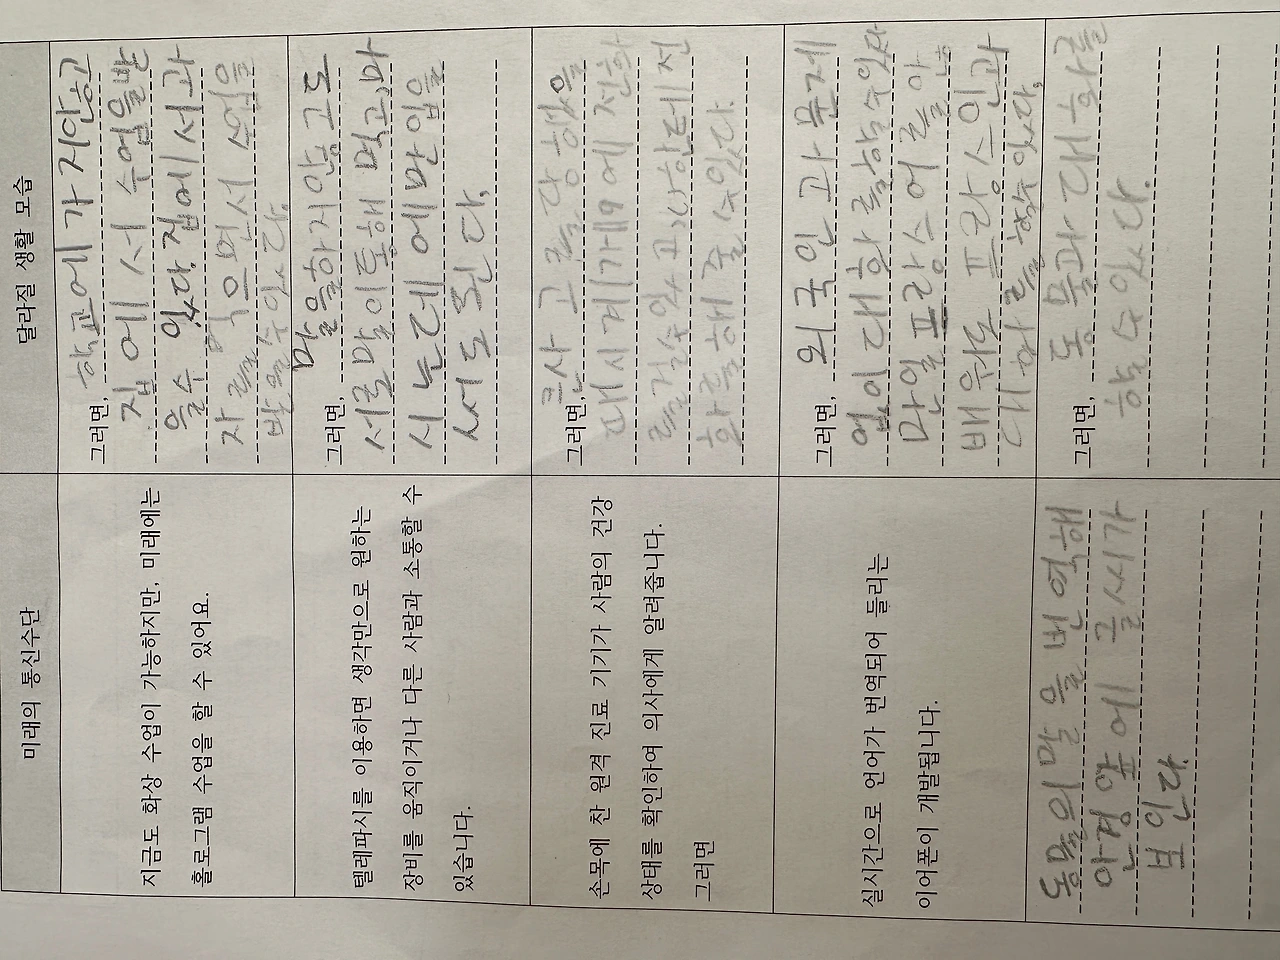 미래의 통신수단
달라질 생활 모습
지금도 화상 수업이 가능하지만, 미래에는
홀로그램 수업을 할 수 있어요.
그러면, 학교에가지안고
집에서 수업을받
을수 있다. 집에서과
자를 먹으면서 수업을
받을수있다.
텔레파시를 이용하면 생각만으로 원하는
장비를 움직이거나 다른 사람과 소통할 수
있습니다.
그러면, 말을하지않고도
서로말이통해 먹고마
시는데에만입을
써도된다.
손목에 찬 원격 진료 기기가 사람의 건강
상태를 확인하여 의사에게 알려줍니다.
그러면
그러면, 큰사고를당했을
때시계가119에전화
를걸수있고,나한테전
화를해줄수있다.
실시간으로 언어가 번역되어 들리는
이어폰이 개발됩니다.
그러면, 외국인과문제
없이대화를할수있다
만일프랑스어를안
배워도 프랑스인과
대화를할수있다.
동물의말을번역해
안경알에 글씨가
보인다.
그러면, 동물과대화를
할수있다.